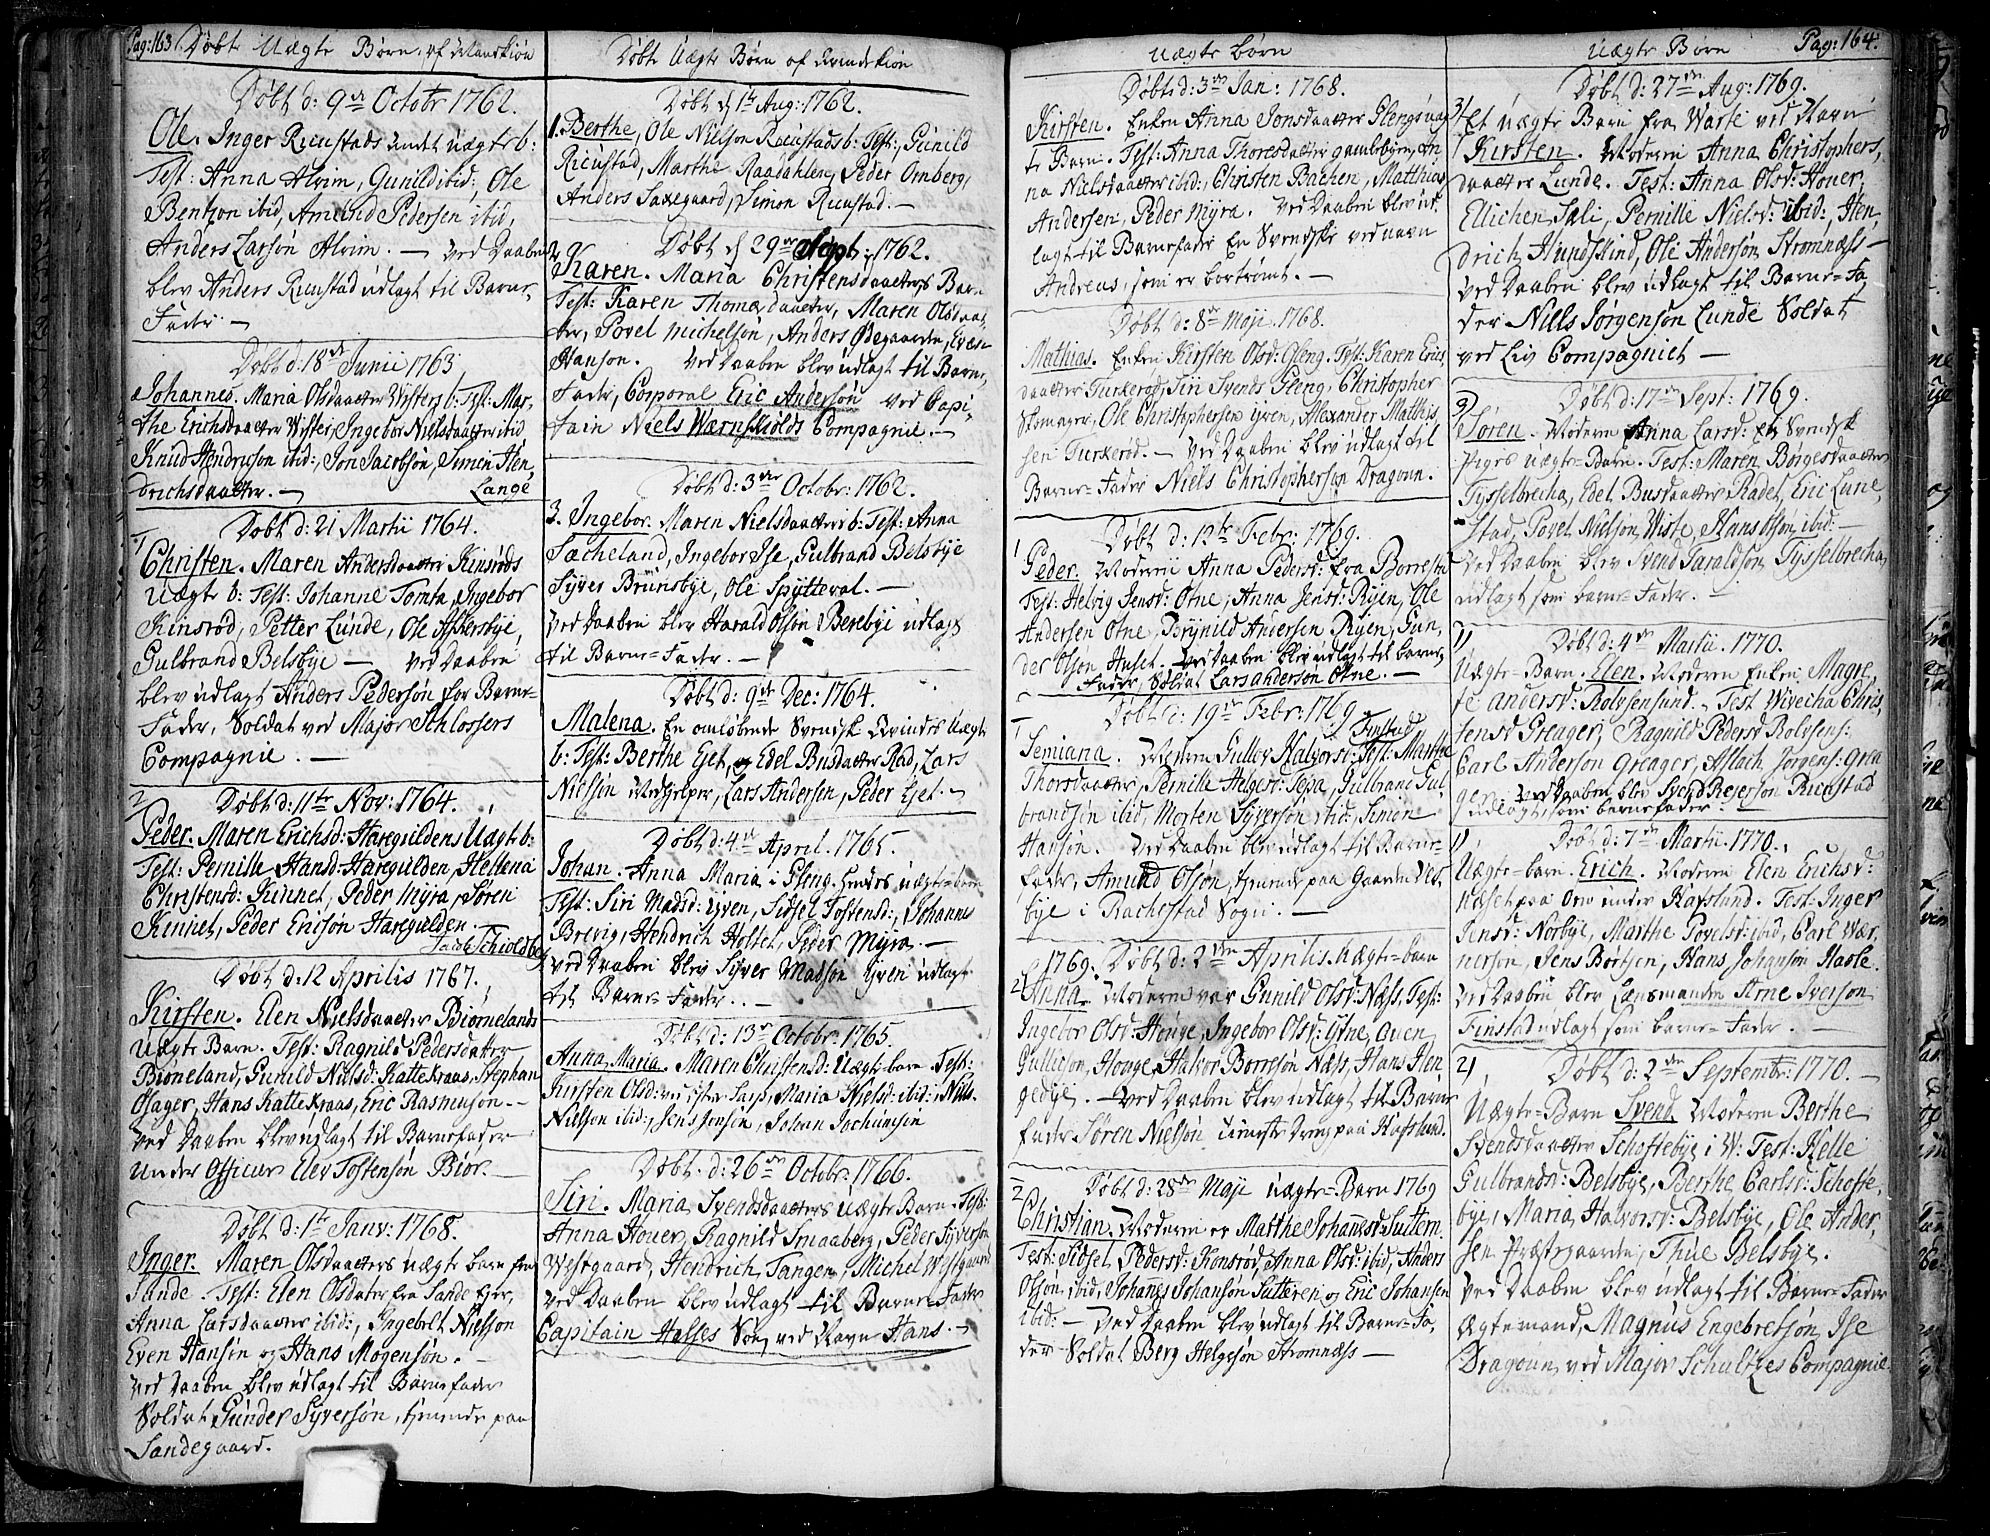 Pag: 163. Døbte Uægte Børn, af Mandkiøn
Døbt d: 9de Octobr 1762.
Ole. Inger Ricustads Uægte b:
Test: Anna Alvim, Gunild ibid; Ole
Bentzon ibid, Amund Pedersen ibid,
Anders Larsøn Alvim. — Ved Daaben
blev Anders Ricustad udlagt til Barne-
Fader. —
Døbt d: 18de Junii 1763.
Johannes. Maria Olsdaatter Visters b: Test: Mar-
the Erichsdaatter Wister, Ingebor Nielsdaatter ibid
Knud Hendricson ibid:, Jon Jacobsøn, Simen Hen-
drichsdaatter. — Lange
Døbt d: 21 Martii 1764.
1 Christen. Maren Andersdaatter Kinrøds
Uægte b: Test: Johanne Tomta, Ingebor
Kinsrød, Petter Lunde, Ole Askersbye,
Gulbrand Belsbye — Ved Daaben
blev udlagt Anders Pedersøn for Barne-
Fader, Soldat ved Major Schlossers
Compagnie. —
2 Døbt d: 11te Nov: 1764.
Peder. Maren Erichsd: Haregüldens Uægt b:
Test: Pernille Hansd: Haregulden, Hellena
Christensd: Kinnet, Peder Myra, Søren
Kinnet, Peder Ericsøn Haregulden.
Døbt d: 12 Aprilis 1767.
Kirsten. Elen Nielsdaatter Biørnelands
Uægte Barn. Test: Ragnild Pedersdatter
Biørneland, Gunild Nielsd: Kattekraas, Stephan
Olager, Hans Kattekraas, Eric Rasmusøn. —
Ved Daaben blev udlagt til Barnefader
Under Officier Elev Tostensøn Biør. —
Døbt d: 1te Janv: 1768.
Inger. Maren Olsdaatters Uægte barn fra
Sande. Test: Elen Olsdater fra Sande Eger,
Anna Larsdaatter ibid:, Ingebret Nielson
Even Hansøn og Hans Mogenson. —
Ved Daaben blev udlagt til Barnefader
Soldat Gunder Syversøn, tienende paa
Sandegaard.
Døbte Uægte Børn af Qvindekiøn
Døbt d 1te Aug: 1762.
1. Berthe, Ole Nielson Ricustads b: Test: Gunild
Ricustad, Marthe Raadahlen, Peder Ornberg,
Anders Saxegaard, Simon Ricustad. —
2. Døbt d 29de Sept: 1762.
Karen. Maria Christensdaatters Barn
Test: Karen Thomædaatter, Maren Olsdaat-
ter, Povel Michelsøn, Anders Ødegaarden, Even
Hanson. Ved Daaben blev udlagt til Barne-
Fader, Corporal Eric Andersøn ved Capi-
tain Niels Wærnskiolds Compagnie. —
Døbt d: 3die Octobr: 1762.
3. Ingebor. Maren Nielsdaatters b: Test: Anna
Sæcheland, Ingebor Ise, Gulbrand Belsbye
Syver Brunsbye, Ole Spytteval. —
Ved Daaben blev Harald Olsøn Berebye udlagt
til Barne-Fader. —
Døbt d: 9de Dec: 1764.
Malena. En omløbende Svensk Qvindes Uægte
b: Test: Berthe Eget, og Edel Busdaatter Rad, Lars
Nielsøn Medhielper, Lars Andersen, Peder Eget. —
Døbt d: 4de April. 1765.
Johan. Anna Maria i Gleng. hendes Uægte-barn
Test: Siri Madsd: Yven, Sidsel Tostensd:, Johannes
Brevig, Hendrich Holtet, Peder Myra. —
Ved Daaben blev Syver Madsøn Yven udlagt
til Barne-Fader. —
Døbt d: 13de Octobr: 1765.
Anna Maria. Maren Christensd: Uægte barn. Test:
Kirsten Olsd: Maria Nielsd: ibid: Niels
Nielson ibid:, Jens Jensen, Johan Jochumsen
Døbt. d: 26de Octobr: 1766.
Siri. Maria Svendsdaatters Uægte Barn. Test:
Anna Houer, Ragnild Smaaberg, Peder Syversøn
Westgaard, Hendrich Tangen, Michel Westgaard
Ved Daaben blev udlagt til Barne-Fader
Capitain Hasses Søn, ved Navn Hans. —
Uægte børn
Døbt d: 3de Jan: 1768.
Kirsten. Enken Anna Jonsdaatter Glengs uæg-
te Barn. Test: Anna Thoresdaatter gamlebyen, An-
na Nielsdaatter ibid:, Christen Bachen, Matthias
Andersen, Peder Myra. Ved Daaben blev ud-
lagt til Barnefader En Svendske ved navn
Andreas, som er bortrømt. —
Døbt d: 8de Maji 1768.
Mathias. Enken Kirsten Olsd: Gleng. Test: Karen Erics-
daatter Turkerød, Siri Svends Gleng, Christopher
Skomager, Ole Christophersen Yven, Alexander Matthis-
sen Turkerød. — Ved Daaben blev udlagt til
Barne-Fader Niels Christophersøn Dragoun.
1 Døbt d: 12te Febr: 1769.
Peder. Moderen Anna Pedersd: fra Borrestad
Test: Helvig Jensd: Otne, Anna Jensd: Ryen, Ole
Andersen Otne, Brynild Andersen Ryen, Gun-
der Olsøn Huset. Ved Daaben blev udlagt til barne-
Fader, Soldat Lars Anderson Otne. —
Døbt d: 19de Febr: 1769.
1 Semiana. Moderen Gullov Halvorsd: Finstad Test: Marthe
Thorsdaatter, Pernille Helgesd: Tepa, Gulbrand Gul-
brandsøn ibid, Morten Syversøn ibid:, Simon
Hansøn. Ved Daaben blev udlagt til Barne-
Fader, Amund Olsøn, tienende paa Gaarden Vis-
bye i Rachestad Sogn. —
1769. Døbt d: 2den Aprilis. Uægte-barn
2 Anna. Moderen var Gunild Olsd: Næss, Test:
Ingebor Olsd: Houge, Ingebor Olsd: Ytne, Ouen
Gullicson Houge, Halvor Borresøn Næss, Hans Hen-
gedye. — Ved Daaben blev udlagt til Barne
fader Søren Nielsøn tieneste Dreng paa Hafslund.
Døbt d: 28de Maji Uægte-Barn 1769
2 Christian. Moderen er Matthe Johansd: Sutteren.
Test: Sidsel Pedersd: Konsrød, Anna Olsd: ibid, Anders
Olsøn ibid, Johannes Johansøn Sutteren og Eric Johansen
ibid: — Ved Daaben blev udlagt til Barne-Fa-
der Soldat Berg Helgesøn Stromnæss —
Uægte Børn Pag: 164.
Døbt d: 27de Aug: 1769.
3 Et uægte Barn fra Warte ved Navn
Kirsten. Moderen Anna Christophers-
daatter Lunde. Test: Anna Olsd: Houer,
Ellichen Sæli, Pernille Nielsd: ibid:, Hen-
drich Hundskind, Ole Andersøn Stromnæss —
Ved Daaben blev udlagt til Barne-Fa-
der Niels Jørgensøn Lunde Soldat
ved Liv Compagniet —
Døbt d: 17de Sept: 1769.
Søren. Moderen Anna Larsd: En Svendsk
Piges uægte-Barn. Test: Maren Borgesdaatter
Tysselbrecha, Edel Busdaatter Radet, Eric Lune-
stad, Povel Nielson Wiste, Hans Olsøn ibid: —
Ved Daaben blev Svend Taraldsøn Tysselbrecha
udlagt som barne-Fader. —
1 Døbt d: 4de Martii. 1770.
Uægte-Barn. Elen. Moderen Enken Magre-
te Andersd: Rolvsensund. Test Wivecha Chris-
tensd Greager, Ragnild Pedersd Rolvsens:
Carl Anderson Greager, Aslach Jorgens: Grea
ger. Ved Daaben blev Svend Rejerson Ricustad
udlagt som barnefader —
1 Døbt d: 7de Martii. 1770.
Uægte-barn. Erich. Moderen Elen Erichsd:
Huset paa Øen under Hafslund. Test: Inger
Jensd: Norbye, Marthe Povelsd: ibid, Carl Wær-
nerson, Jens Borgen, Hans Johanson Hasle.
Ved Daaben blev Lænsmanden Arne Iverson
Finstad udlagt som barne-Fader. —
2 Døbt d: 2den Septembr: 1770. —
Uægte-Barn Svend. Moderen Berthe
Svendsdaatter Schoftebye i W: Test: Helle
Gulbrandsd: Belsbye, Berthe Carlsd: Schofte-
bye, Maria Halvorsd: Belsbye, Ole Ander-
sen Præstegaarden, Thue Belsbye.
Ved Daaben blev udlagt til Barne-Fader
Ægtemand, Magnus Engebretsøn Ise
Dragoun ved Major Schultzes Compagnie